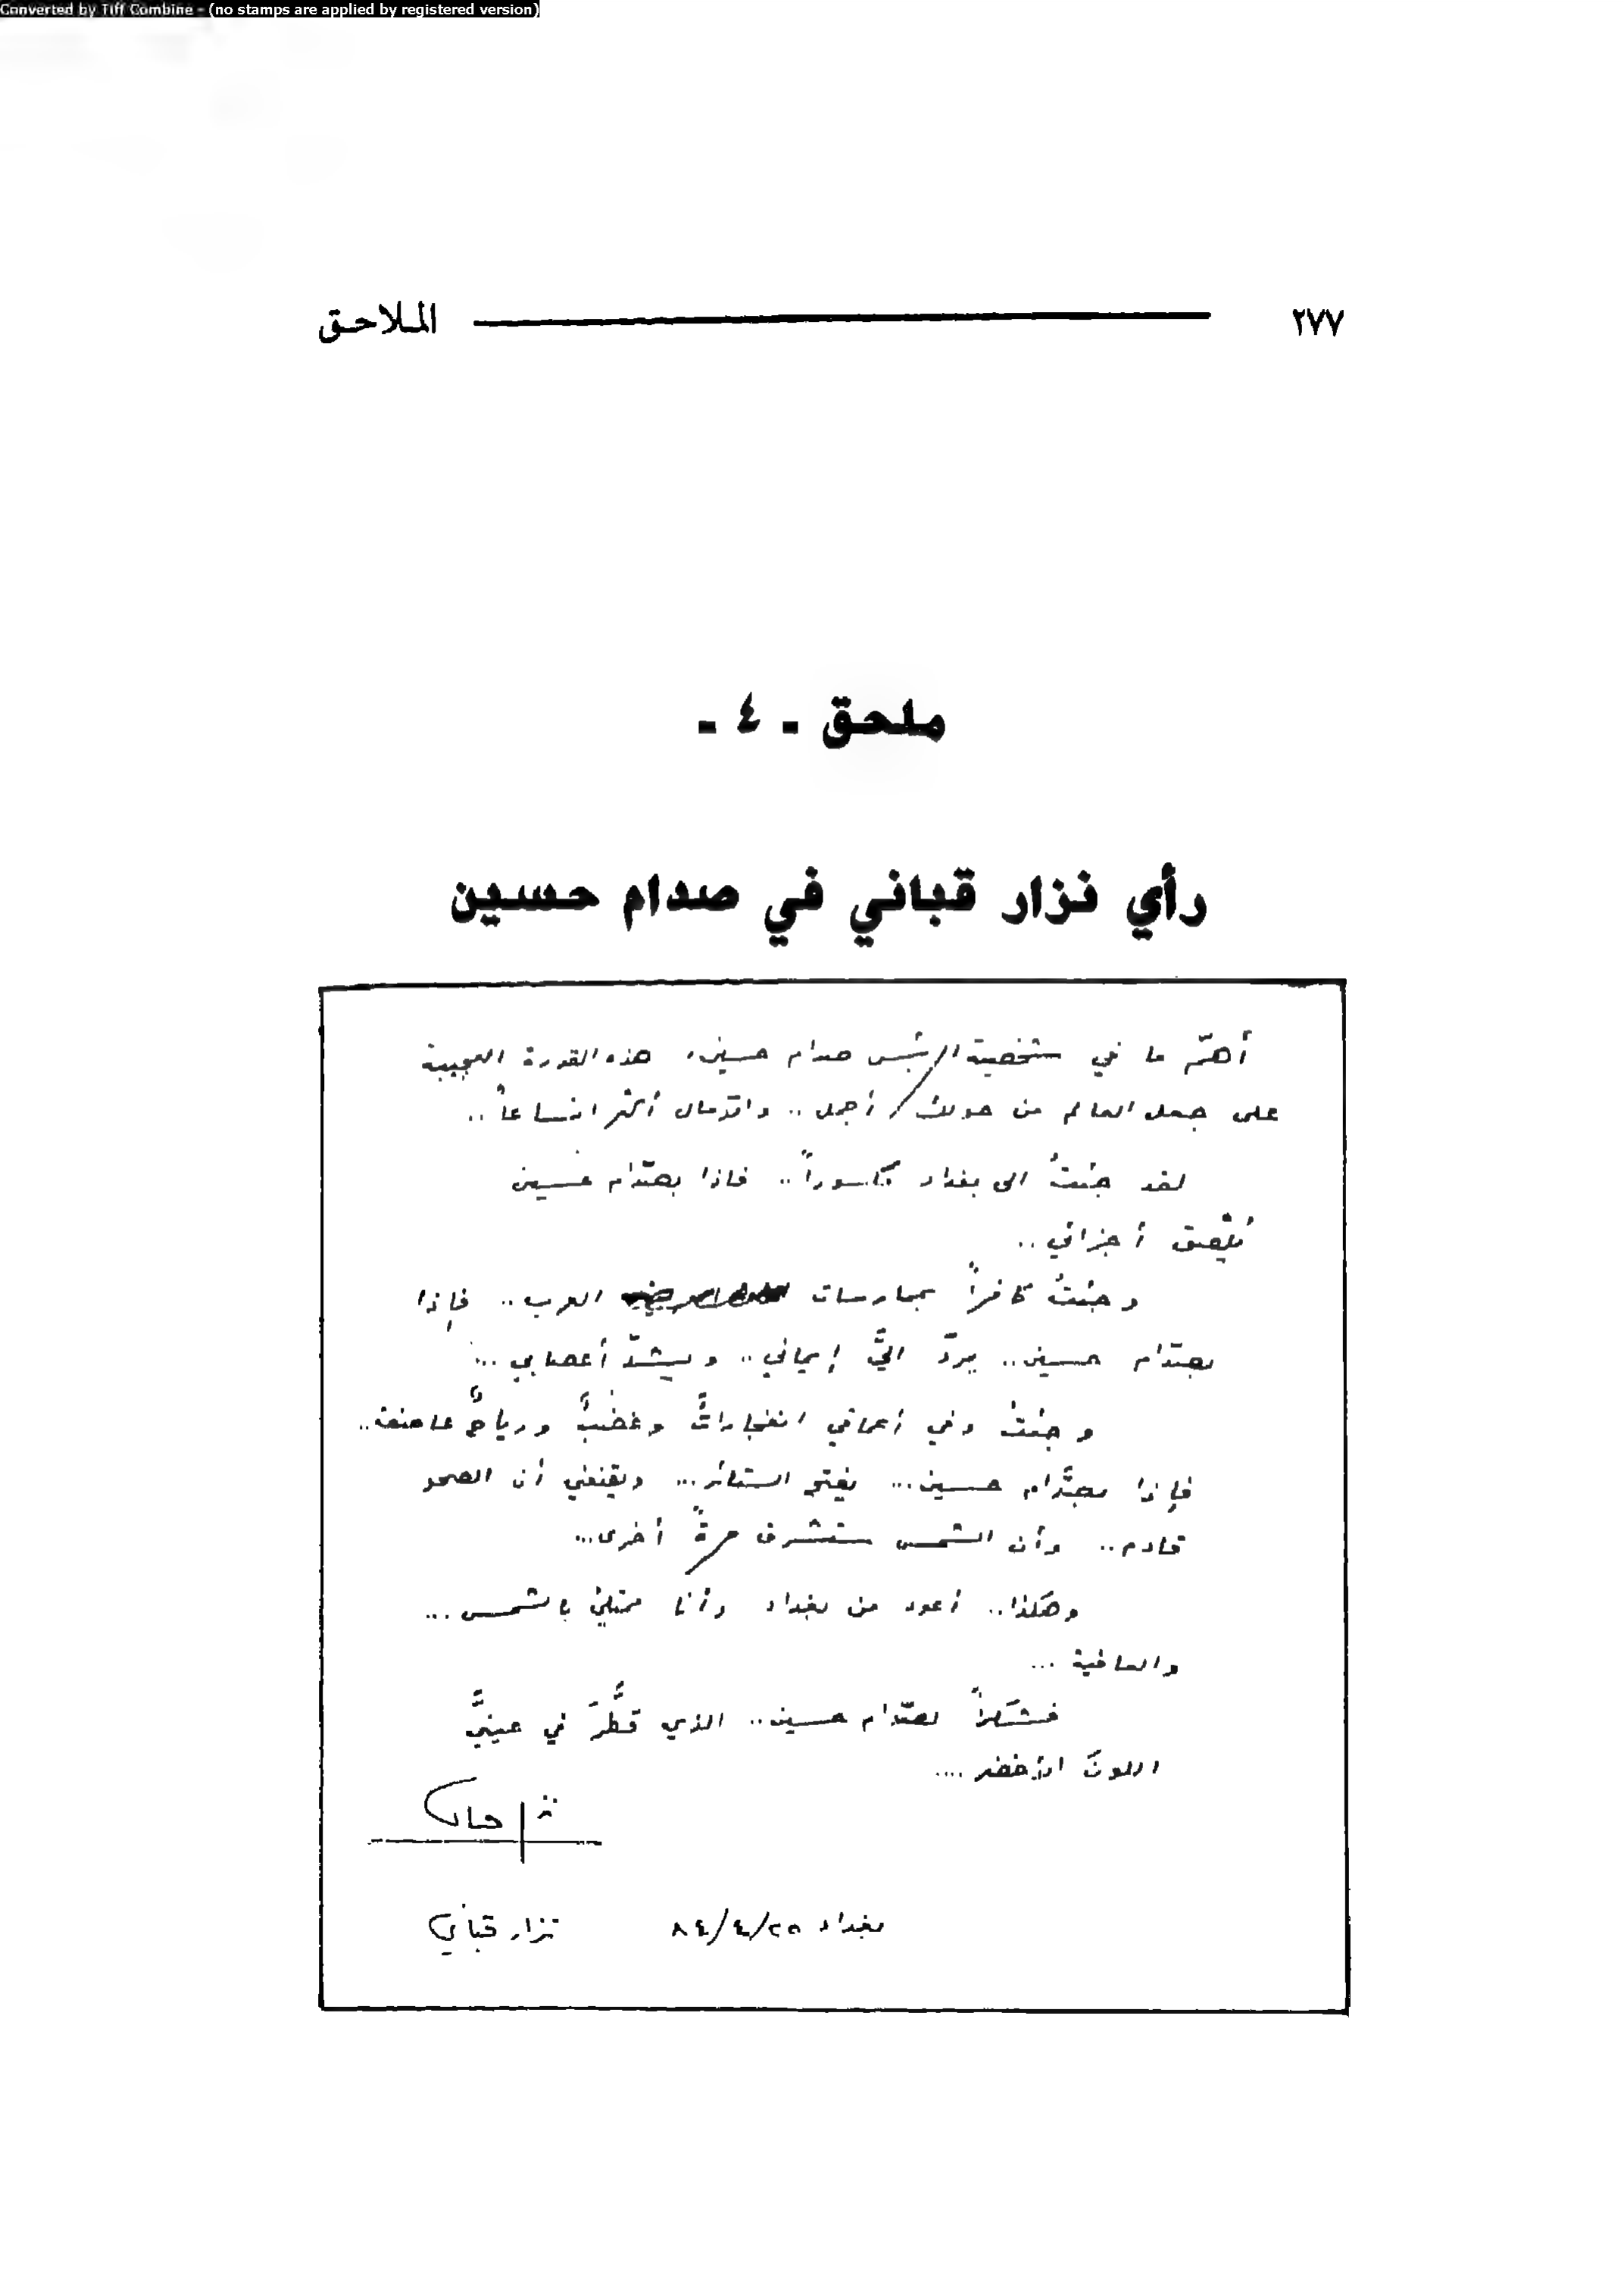 Converted by Tiff Combine - (no stamps are applied by registered version)
٢٧٧ الملاحق
ملحق - ٤ -
رأي نزار قباني في صدام حسين
أهمّ ما في شخصية الرئيس صدام حسين، هذه القدرة العجيبة
على جعل العالم من حولك أجمل .. والآمال أكثر اتساعاً ..
لقد جئتُ الى بغداد مكسوراً .. فاذا بصدّام حسين
يُلصق أجزائي ..
وجئتُ كافراً بممارسات العرب .. فإذا
بصدّام حسين .. يردّ اليَّ إيماني .. ويشدّ أعصابي ...
وجئتُ وفي أعماقي انفجاراتٌ وغضبٌ ورياحٌ عاصفة ..
فإذا بصدَّام حسين ... يفتح الستائر ... ويقنعني أن الصحو
قادم .. وأن الشمس ستشرق مرةً أخرى ...
وهكذا .. أعود من بغداد وأنا ممتلئ بالشمس ...
والعافية ...
فشكراً لصدّام حسين .. الذي قطَّرَ في عينيَّ
اللونَ الأخضر ....
بغداد ٢٥/٤/٨٤ نزار قباني